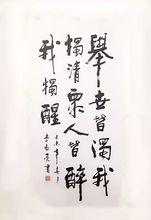 舉世皆濁我
獨清眾人皆醉
我獨醒